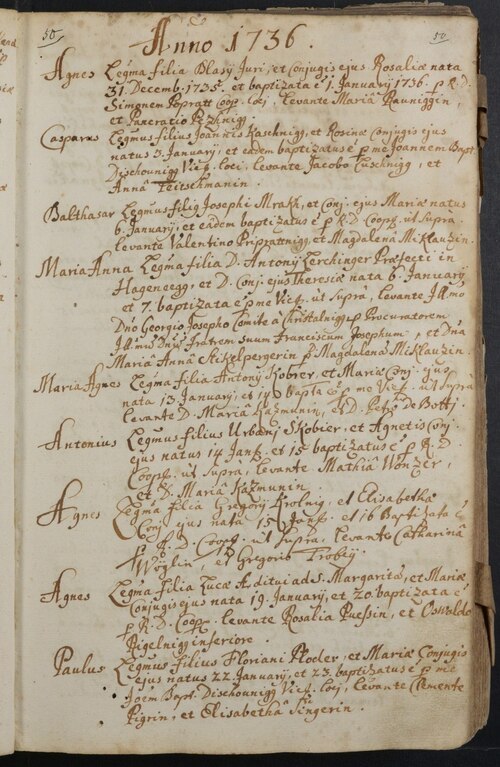 50.
50.
Anno 1736.
Agnes Legma filia Blasÿ Juri, et Conjugis ejus Rosaliæ nata
31. Decemb. 1735. et baptizata é 1. January 1736. p R.D.
Simonem Popratt Coop. loci, Levante Mariâ Rauniggin,
et Pancratio
Casparus Legmus filius Joannis Kaschnigg, et Rosinæ Conjugis ejus
natus 3. January, et eâdem baptizatus é p me Joannem Bapt.
Dischounigg Vicf. loci, levante Jacobo Tuschnigg, et
Annâ Teitschmanin.
Balthasar Legmus filiq Josephi Mrakh, et Conj. ejus Mariæ natus
6. January, et eâdem baptizatus é p R.D. Coopp. ut supra.
levante Valentino Pripratnigg, et Magdalenâ Miklauzin.
Maria Anna Legma filia D. Antonÿ Lerchinger Præfecti in
Hagenegg, et D. Conj. ejus Theresiæ nata 6. January
et 7. baptizata é p me Vicf. ut suprâ, levante Illmo
Dno Georgio Josepho Comite à Christalnigg p Procuratorem
Fratrem suum Franciscum Josephum, et Dnâ
Mariâ Annâ Stikelpergerin p Magdalenâ Miklauzin.
Maria Agnes Legma filia Antonÿ Kobrer, et Mariæ Conj. ejus
nata 13. January, et 14 bapta é p me Vicf. ut suprà
levante D. Mariâ Kazmunin, et D. Petro de Bottj.
Antonius Legmus filius Urbanj Skobier, et Agnetis Conj.
ejus natus 14 Janr. et 15 baptizatus é p R.D.
Coopp. ut suprà, levante Mathiâ Wonzer,
et D. Mariâ Kazmunin.
Agnes Legma filia Gregorÿ Krolnig, et Elisabethæ
Conj. ejus nata 15 Janr. et 16 Baptizata é
p R.D. Coopp. ut supra, levante Catharinâ
Wöglin, et Gregorio Trobej.
Agnes Legma filia Lucæ Æditui ad S. Margarita, et Mariæ
Conjugis ejus nata 19. January, et 20. baptizata é
p R.D. Coopp. levante Rosalia Puessin, et Oswaldo
Rigelnig inferiore.
Paulus Legmus filius Floriani Ploder, et Mariæ Conjugis
ejus natus 22. January, et 23. baptizatus é p me
Joem Bapt. Dischounigg Vicf. locj, levante Clemente
Pigrin, et Elisabethâ Singerin.